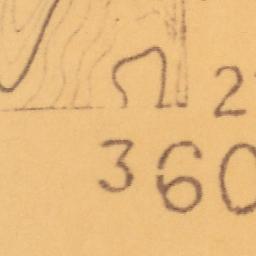 2
360